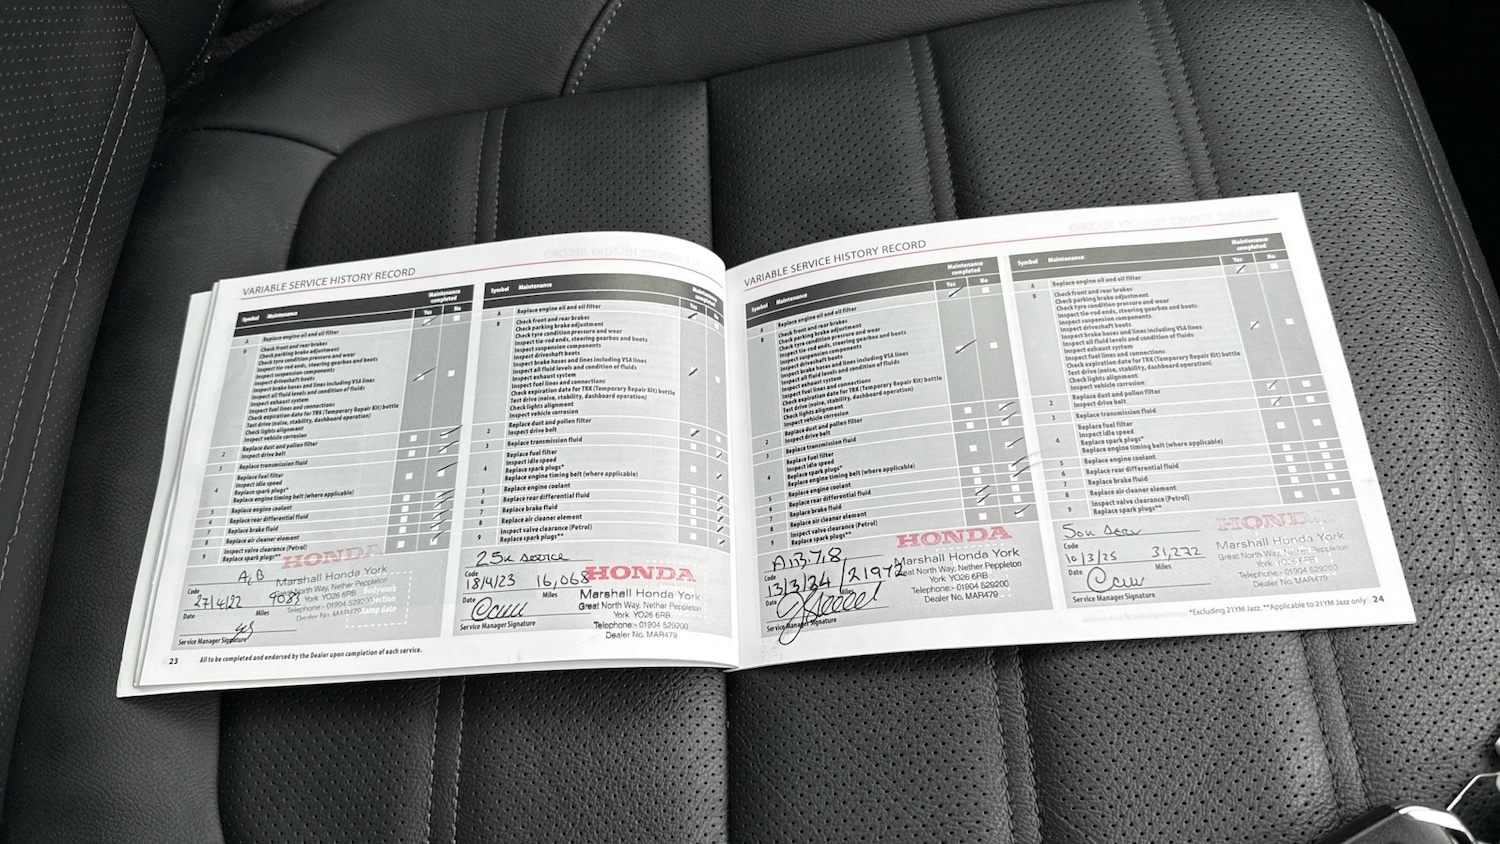 VARIABLE SERVICE HISTORY RECORD
Symbol Maintenance Maintenance completed
Yes No
A Replace engine oil and oil filter
B Check front and rear brakes
Check parking brake adjustment
Check tyre condition pressure and wear
Inspect tie-rod ends, steering gearbox and boots
Inspect suspension components
Inspect driveshaft boots
Inspect brake hoses and lines including VSA lines
Inspect all fluid levels and condition of fluids
Inspect exhaust system
Inspect fuel lines and connections
Check expiration date for TRK (Temporary Repair Kit) bottle
Test drive (noise, stability, dashboard operation)
Check lights alignment
Inspect vehicle corrosion
2 Replace dust and pollen filter
Inspect drive belt
3 Replace transmission fluid
4 Replace fuel filter
Inspect idle speed
Replace spark plugs*
Replace engine timing belt (where applicable)
5 Replace engine coolant
6 Replace rear differential fluid
7 Replace brake fluid
8 Replace air cleaner element
9 Inspect valve clearance (Petrol)
Replace spark plugs**
HONDA
Marshall Honda York
Great North Way, Nether Peppleton
York YO26 6RB
Telephone:- 01904 529200
Dealer No. MAR479
A, B
Code
27/4/22 9083
Date Miles
Service Manager Signature
23 All to be completed and endorsed by the Dealer upon completion of each service.
Symbol Maintenance Maintenance completed
Yes No
A Replace engine oil and oil filter
B Check front and rear brakes
Check parking brake adjustment
Check tyre condition pressure and wear
Inspect tie-rod ends, steering gearbox and boots
Inspect suspension components
Inspect driveshaft boots
Inspect brake hoses and lines including VSA lines
Inspect all fluid levels and condition of fluids
Inspect exhaust system
Inspect fuel lines and connections
Check expiration date for TRK (Temporary Repair Kit) bottle
Test drive (noise, stability, dashboard operation)
Check lights alignment
Inspect vehicle corrosion
2 Replace dust and pollen filter
Inspect drive belt
3 Replace transmission fluid
4 Replace fuel filter
Inspect idle speed
Replace spark plugs*
Replace engine timing belt (where applicable)
5 Replace engine coolant
6 Replace rear differential fluid
7 Replace brake fluid
8 Replace air cleaner element
9 Inspect valve clearance (Petrol)
Replace spark plugs**
25k service
Code
18/4/23 16,068
Date Miles
Service Manager Signature
HONDA
Marshall Honda York
Great North Way, Nether Peppleton
York YO26 6RB
Telephone:- 01904 529200
Dealer No. MAR479
VARIABLE SERVICE HISTORY RECORD
Symbol Maintenance Maintenance completed
Yes No
A Replace engine oil and oil filter
B Check front and rear brakes
Check parking brake adjustment
Check tyre condition pressure and wear
Inspect tie-rod ends, steering gearbox and boots
Inspect suspension components
Inspect driveshaft boots
Inspect brake hoses and lines including VSA lines
Inspect all fluid levels and condition of fluids
Inspect exhaust system
Inspect fuel lines and connections
Check expiration date for TRK (Temporary Repair Kit) bottle
Test drive (noise, stability, dashboard operation)
Check lights alignment
Inspect vehicle corrosion
2 Replace dust and pollen filter
Inspect drive belt
3 Replace transmission fluid
4 Replace fuel filter
Inspect idle speed
Replace spark plugs*
Replace engine timing belt (where applicable)
5 Replace engine coolant
6 Replace rear differential fluid
7 Replace brake fluid
8 Replace air cleaner element
9 Inspect valve clearance (Petrol)
Replace spark plugs**
Code
13/3/24 21972
Date Miles
Service Manager Signature
HONDA
Marshall Honda York
Great North Way, Nether Peppleton
York YO26 6RB
Telephone:- 01904 529200
Dealer No. MAR479
Symbol Maintenance Maintenance completed
Yes No
A Replace engine oil and oil filter
B Check front and rear brakes
Check parking brake adjustment
Check tyre condition pressure and wear
Inspect tie-rod ends, steering gearbox and boots
Inspect suspension components
Inspect driveshaft boots
Inspect brake hoses and lines including VSA lines
Inspect all fluid levels and condition of fluids
Inspect exhaust system
Inspect fuel lines and connections
Check expiration date for TRK (Temporary Repair Kit) bottle
Test drive (noise, stability, dashboard operation)
Check lights alignment
Inspect vehicle corrosion
2 Replace dust and pollen filter
Inspect drive belt
3 Replace transmission fluid
4 Replace fuel filter
Inspect idle speed
Replace spark plugs*
Replace engine timing belt (where applicable)
5 Replace engine coolant
6 Replace rear differential fluid
7 Replace brake fluid
8 Replace air cleaner element
9 Inspect valve clearance (Petrol)
Replace spark plugs**
50k Serv
Code
10/3/25 31,272
Date Miles
Service Manager Signature
HONDA
Marshall Honda York
Great North Way, Nether Peppleton
York YO26 6RB
Telephone:- 01904 529200
Dealer No. MAR479
*Excluding 21YM Jazz. **Applicable to 21YM Jazz only. 24